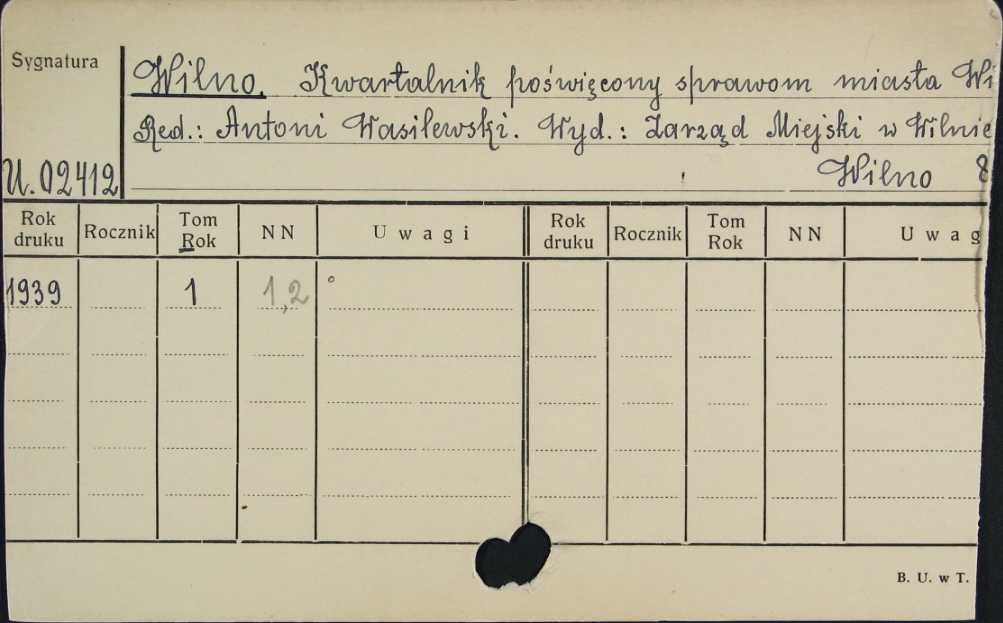 Sygnatura
Wilno. Kwartalnik poświęcony sprawom miasta Wi
Red.: Antoni Wasilewski. Wyd.: Zarząd Miejski w Wilnie
U. 02412
Wilno 8
Rok druku Rocznik Tom Rok NN Uwagi Rok druku Rocznik Tom Rok NN Uwag
1939 1 1,2
B. U. w T.